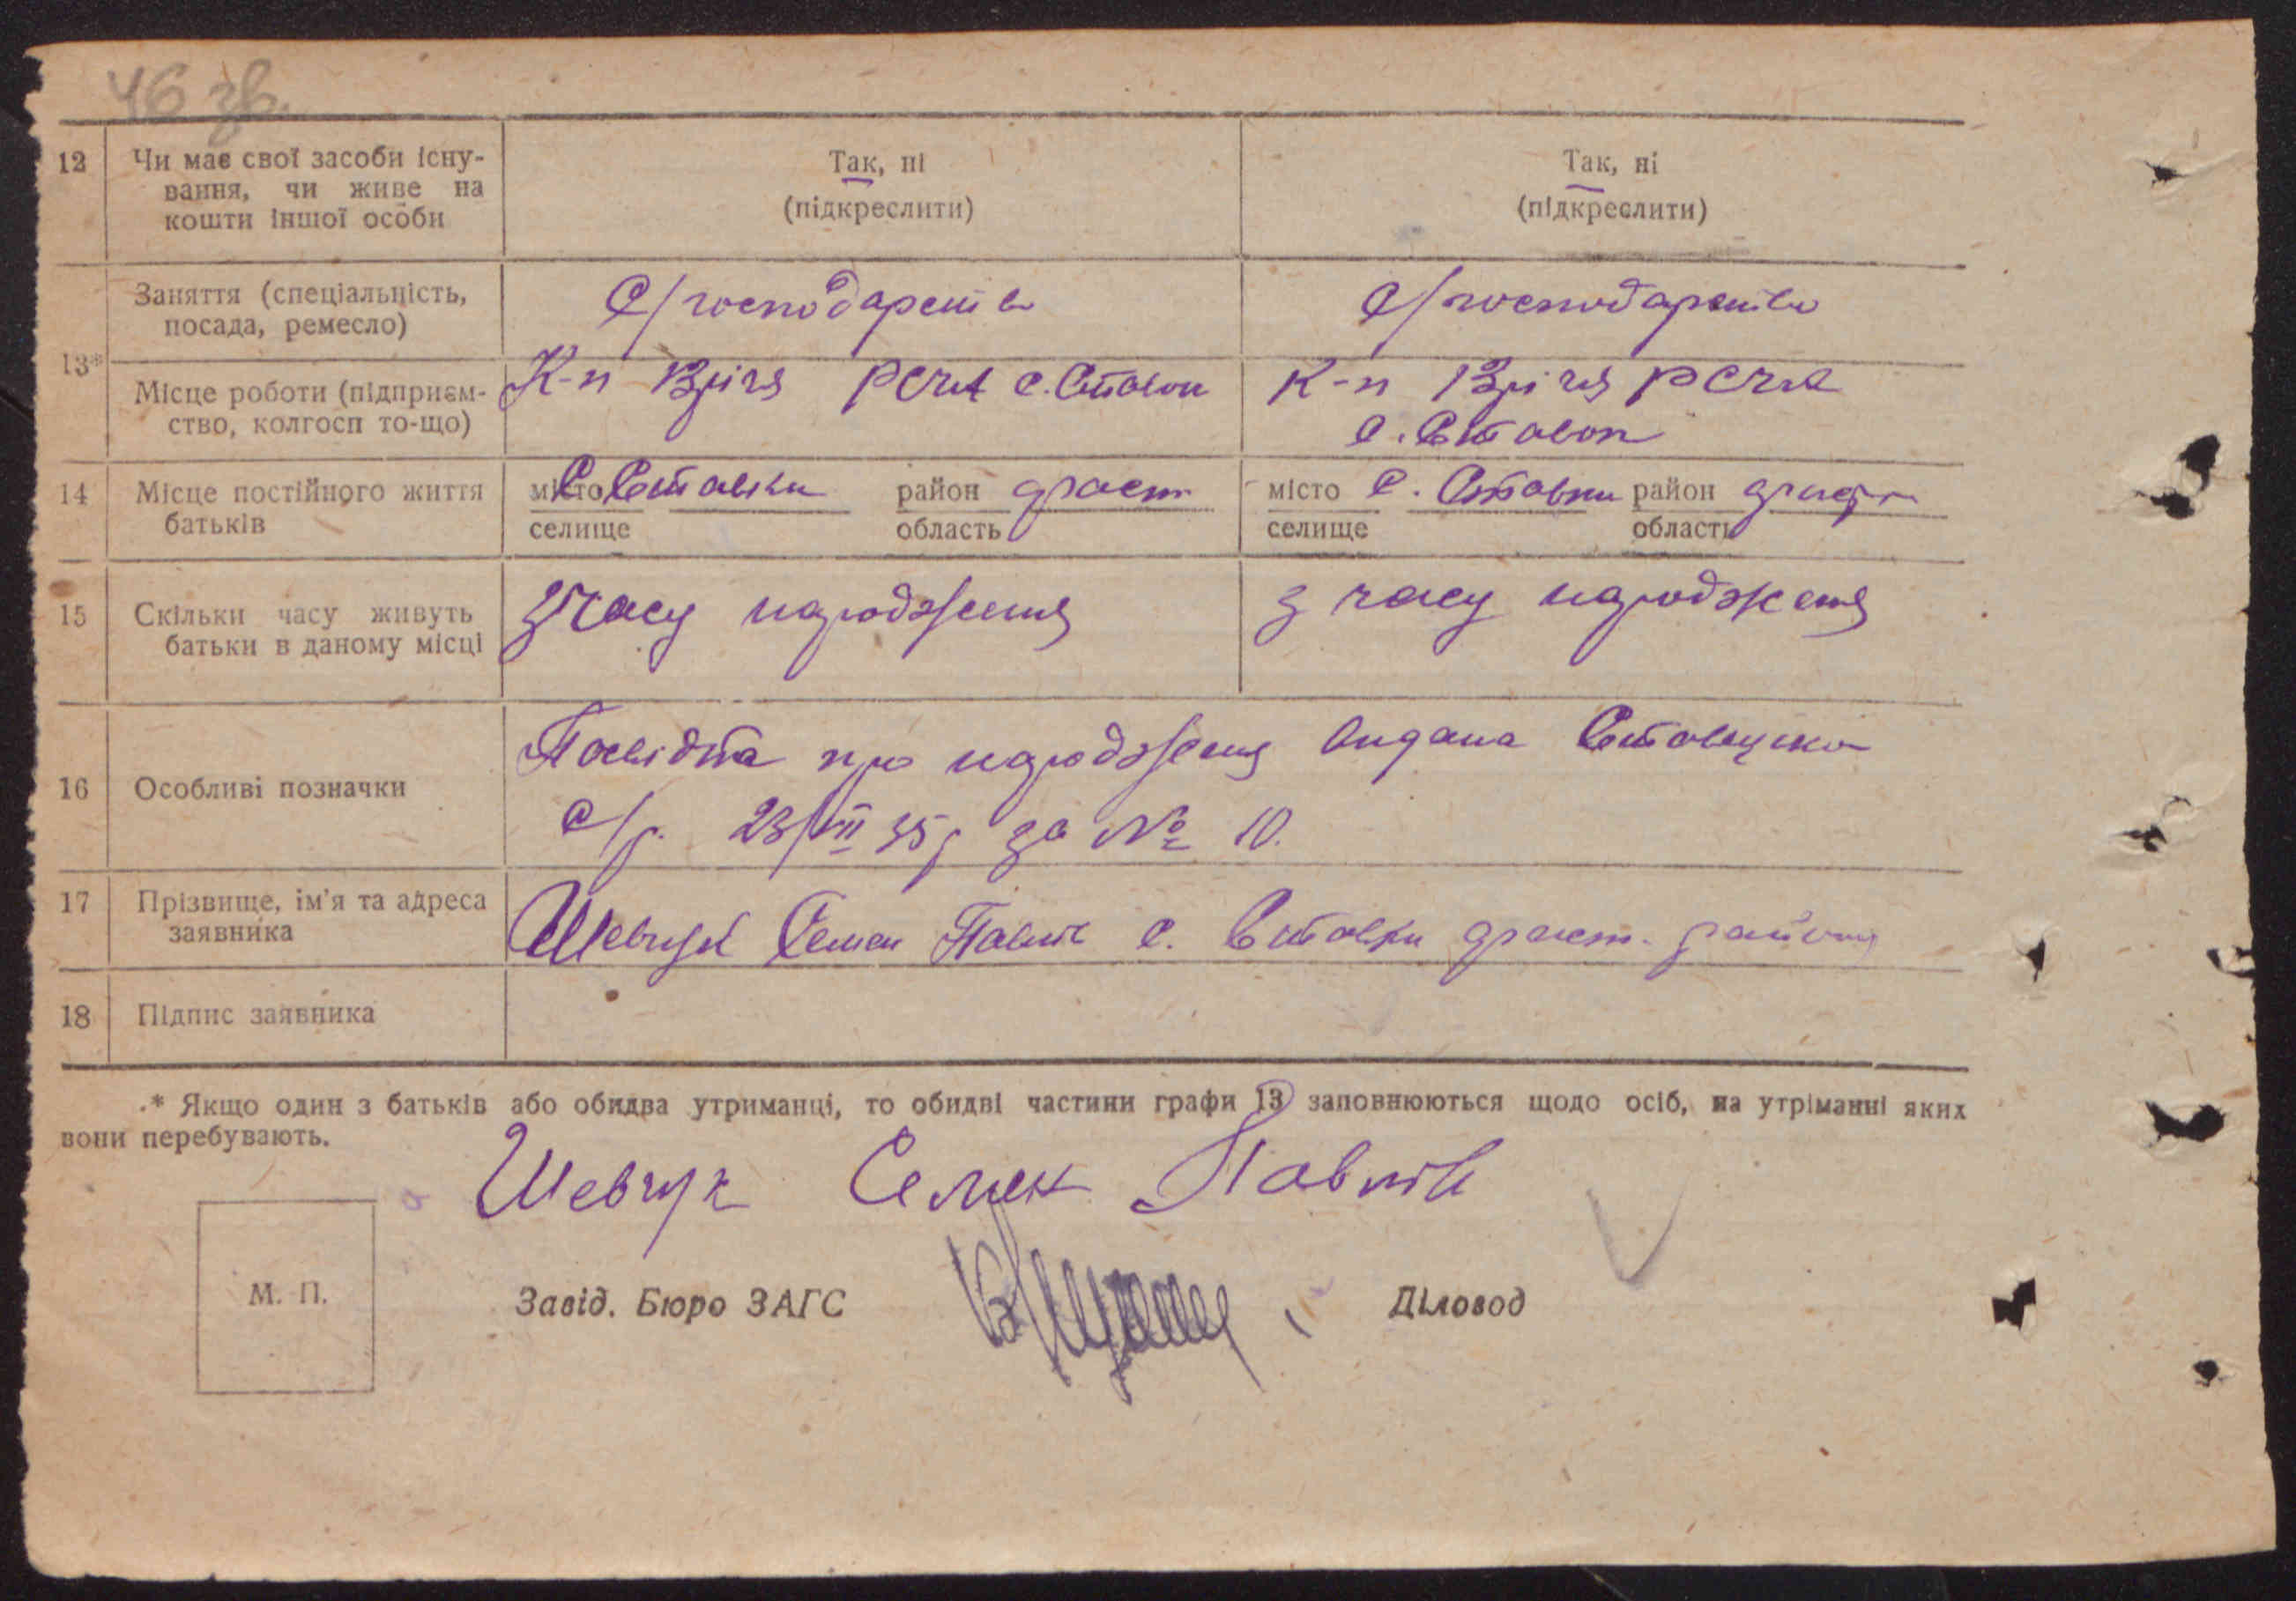 46 зв.
12 Чи має свої засоби існу-
вання, чи живе на
кошти іншої особи
Так, ні
(підкреслити)
Так, ні
(підкреслити)
13*
Заняття (спеціальність,
посада, ремесло)
С/господарство
С/господарство
Місце роботи (підприєм-
ство, колгосп то-що)
К-п РСЧА с. Ставки
К-п РСЧА
с. Ставки
14 Місце постійного життя
батьків
місто с. Ставки район
селище область
місто с. Ставки район
селище область
15 Скільки часу живуть
батьки в даному місці
з часу народження
з часу народження
16 Особливі позначки
Посвідка про народження видана Ставецькою
с/р. 23/VII 35 р за № 10.
17 Прізвище, ім'я та адреса
заявника
Шевчук Семен Павлів с. Ставки району
18 Підпис заявника
* Якщо один з батьків або обидва утриманці, то обидві частини графи 13 заповнюються щодо осіб, на утріманні яких
вони перебувають.
Шевчук Семен Павлів
М. П.
Завід. Бюро ЗАГС
Діловод